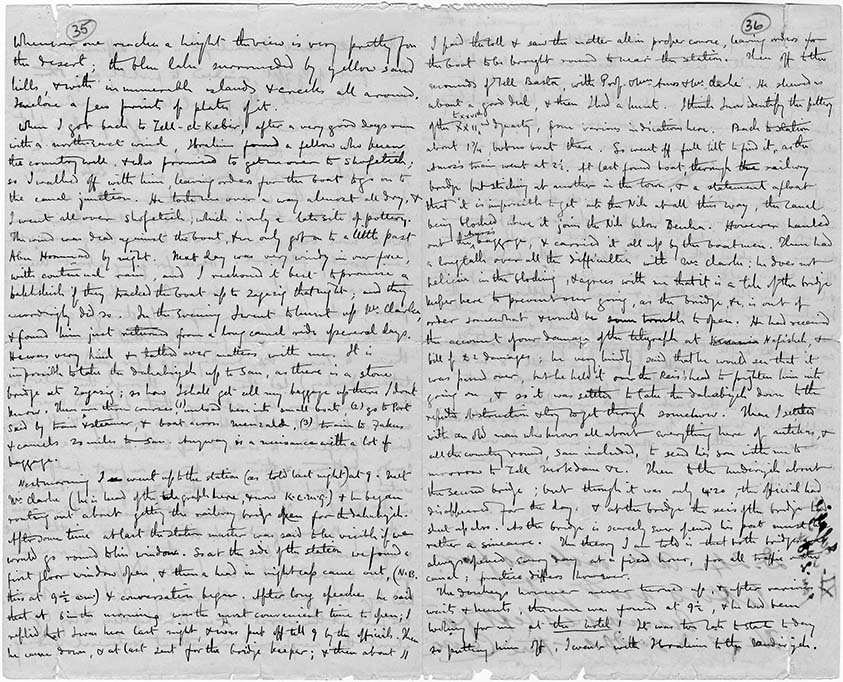 35
Whenever one reaches a height the view is very pretty for
the desert; the blue lake surrounded by yellow sand
hills, & with innumerable islands & creeks all around.
I enclose a few prints of plates of it.
When I got back to Tell-el-Kebir, after a very good days run
with a north east wind, Ibrahim found a fellow who knew
the country well & who promised to get me over to Shofetieh;
so I walked off with him, leaving orders for the boat to go on to
the canal junction. He took me over a way almost all dry, &
I went all over Shofetieh; which is only a late site of pottery.
The wind was dead against the boat, & we only got on to a little past
Abu Hommad by night. Next day was very windy in our face,
with continual rain, and I reckoned it best to promise a
bakhshish if they tracked the boat up to Zagazig that night; and they
accordingly did so. In the evening I went to hunt up Mr. Clarke,
& found him just returned from a long camel ride of several days.
He was very kind & talked over matters with me. It is
impossible to take the dahabiyeh up to San, as there is a stone
bridge at Zagazig; so how I shall get all my baggage up there I don't
know. There are three courses (1) unload here into small boat, (2) go to Port
Said by train & steamer, & boat across Menzaleh, (3) train to Fakus
& camels 20 miles to San. Anyway is a nuisance with a lot of
baggage.
Next morning I went up to the station (as told last night) at 9. Met
Mr Clarke (he is head of the telegraph here, & now K.C.M.G.) & he began
routing out about getting the railway bridge open for the dahabiyeh.
After some time at last the station master was said to be visible if we
would go round to his window. So at the side of the station we found a
first floor window open, & then a head in nightcap came out, (N.B.
this at 9½ am) & conversation began. After long speeches he said
that at 6 in the morning was the most convenient time to open; I
replied that I was here last night, & was put off till 9 by the officials. Then
he came down, & at last sent for the bridge keeper; & then about 11
36
I paid the toll & saw the matter all in proper course, leaving orders for
the boat to be brought round to near the station. Then off to the
mounds of Tell Basta, with Prof. & Mrs Amos & Mr Clarke. He shewed us
about a good deal, & then I had a hunt. I think I can identify the pottery
of the XXII nd dynasty, from various indications here. Back to station
about 1½, but no boat there. So went off full tilt to find it, as the
Amos's train went at 2½. At last found boat through the railway
bridge but sticking at another in the town, & a statement afloat
that it is impossible to get into the Nile at all this way, the canal
being blocked where it joins the Nile below Benha. However hauled
out baggage, & carried it all up by the boatmen. Then had
a long talk over all the difficulties with Mr Clarke; he does not
believe in the blocking, & agrees with me that it is a tale of the bridge
keeper here to prevent our going, as the bridge, &c, is out of
order somewhat & would be some trouble to open. He had received
the account of our damage of the telegraph at Hafisheh, &
bill of £2 damages; he very kindly said that he would see that it
was passed over, but he held it over the Reis' head to frighten him into
going on, & so it was settled to take the dahabiyeh down to the
reputed obstruction & try to get through somehow. Then I settled
with an old man who knows all about everything here of antikas, &
all the country round, San included, to send his son with me to
morrow to Tell Mokdam &c. Then to the mudiriyeh about
the second bridge; but though it was only 4.20, the official had
disappeared for the day. & at the bridge the reis of the bridge had
shut up also. As the bridge is scarcely ever opened his post must be
rather a sinecure. The theory I am told is that both bridges are
always opened every day at a fixed hour, for all traffic on the
canal; practice differs however.
The donkeys however never turned up. After various
waits & hunts, the man was found at 9½, & he had been
looking for me at the hotel! It was too late to start to day
so putting him off, I went with Ibrahim to the mudiriyeh.